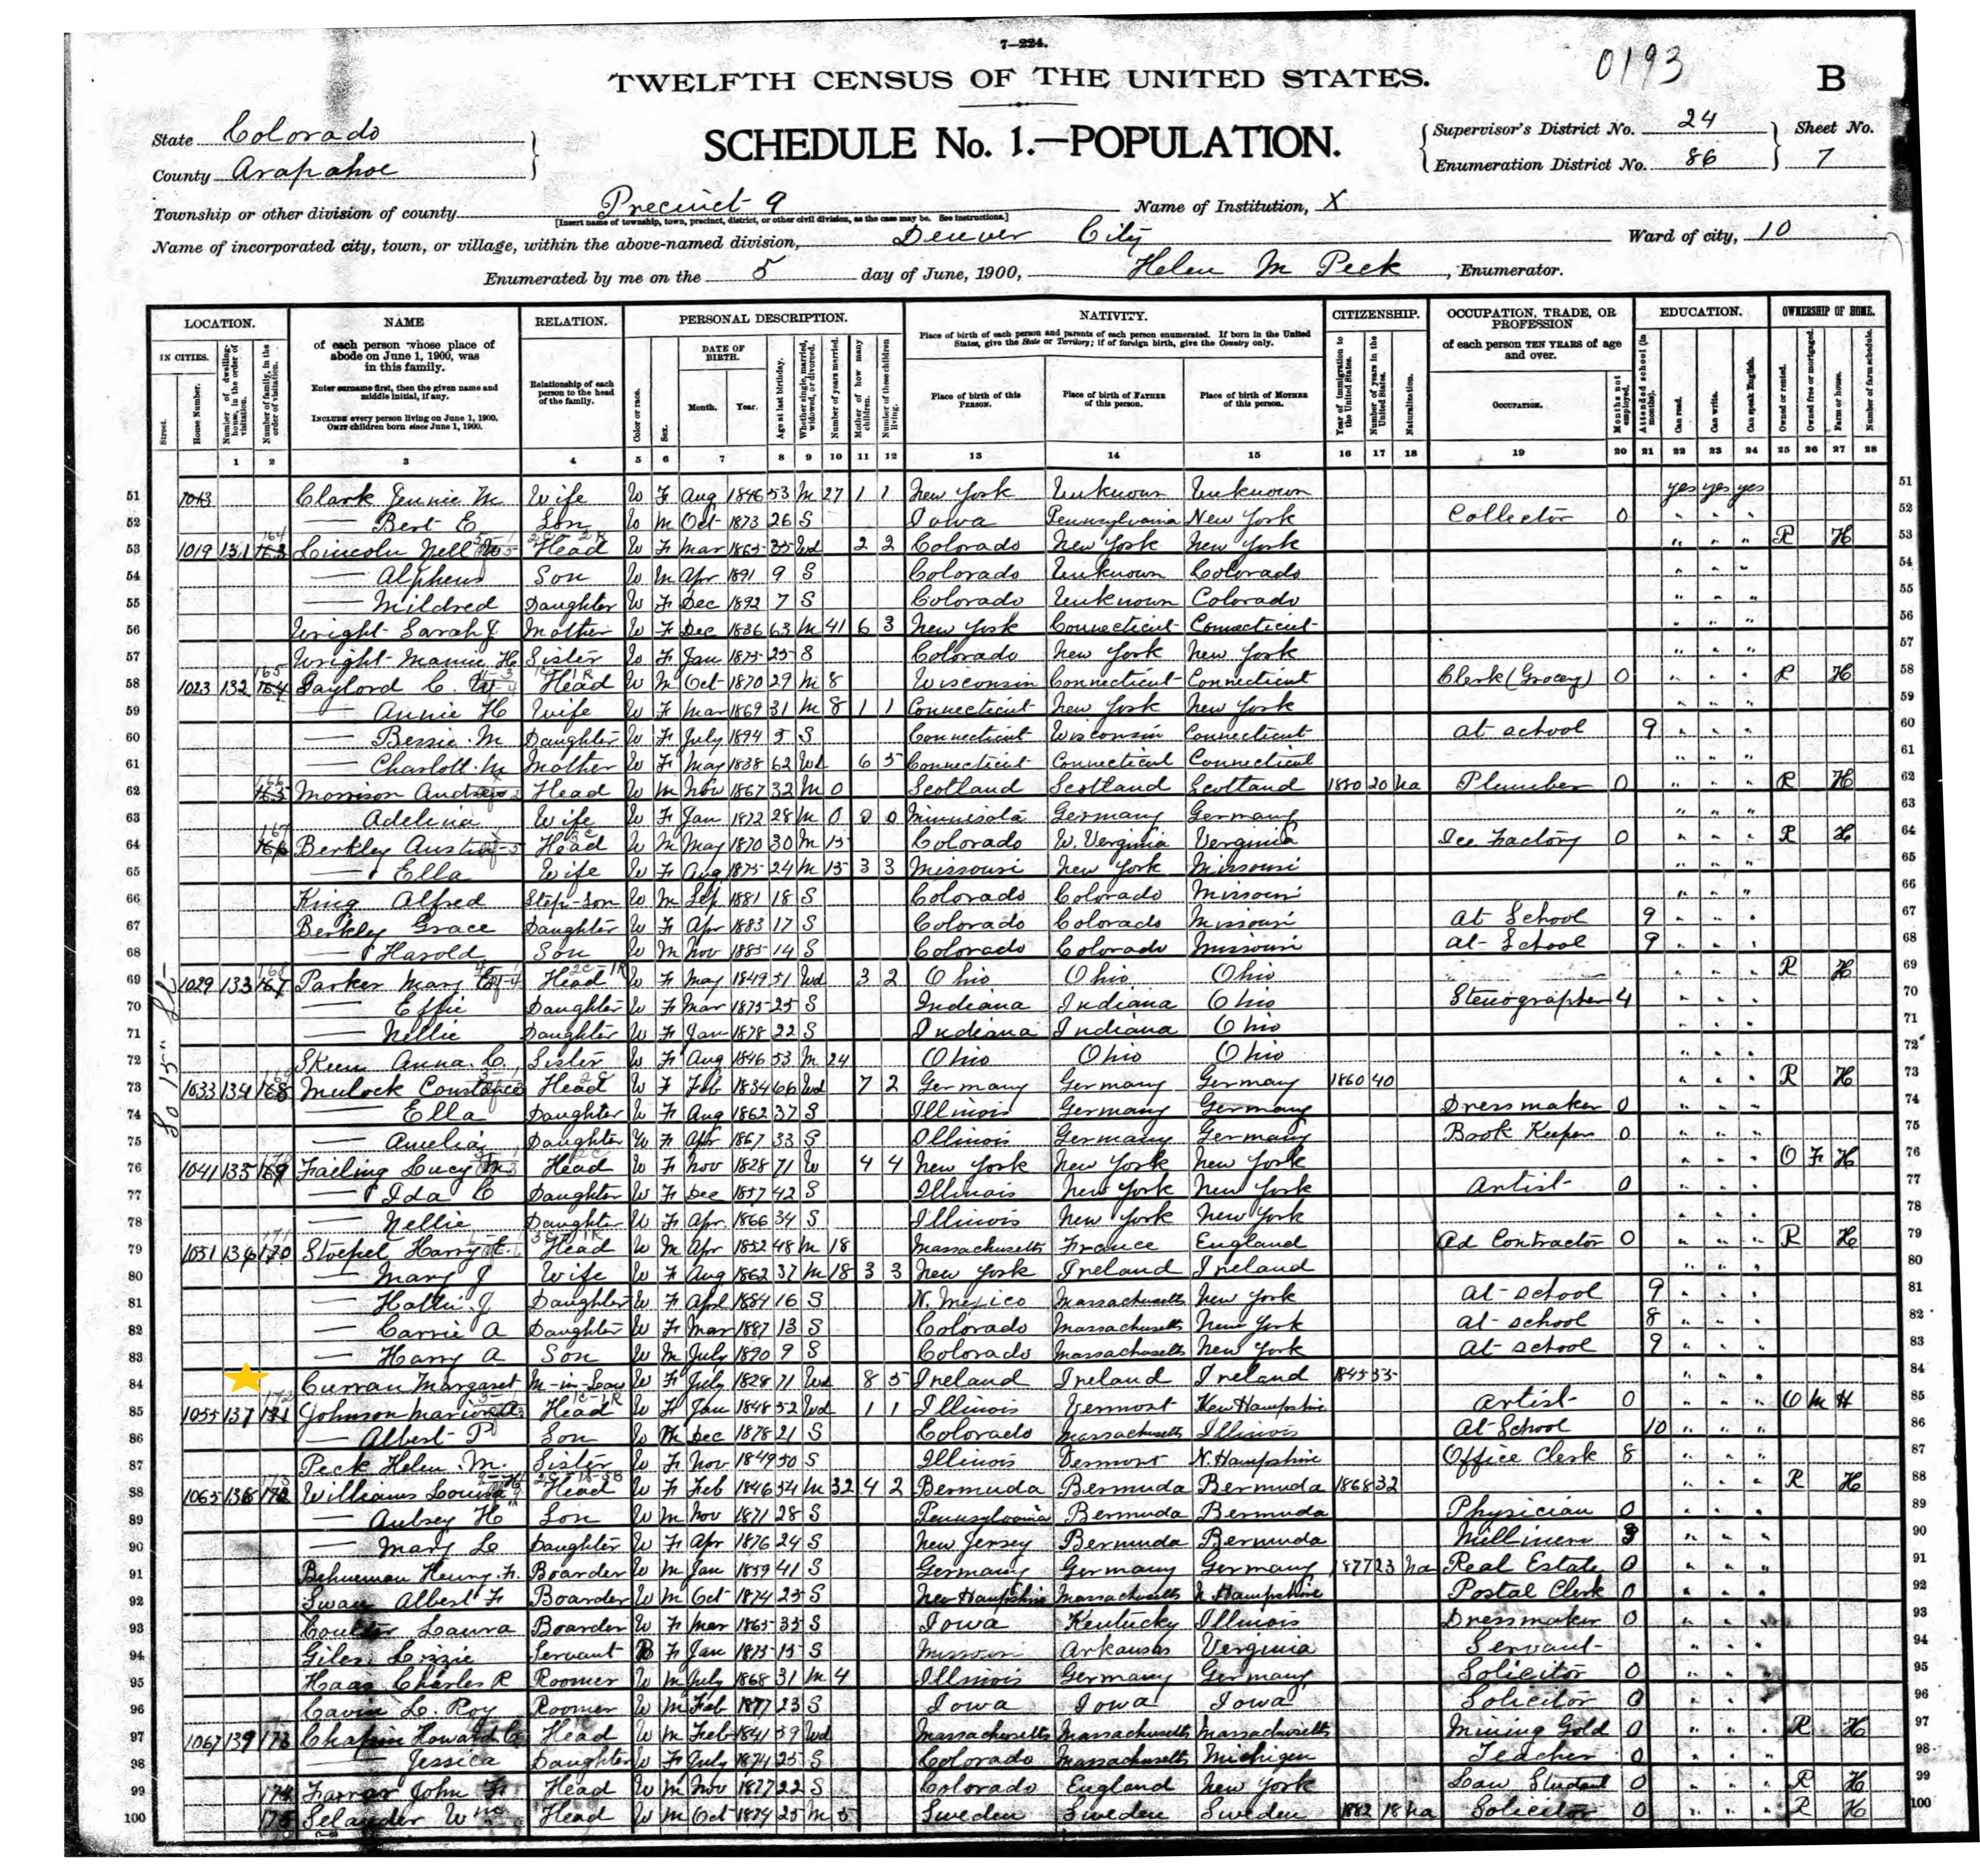 7—224.
0193
B
TWELFTH CENSUS OF THE UNITED STATES.
SCHEDULE No. 1.—POPULATION.
State Colorado
County Arapahoe
Supervisor's District No. 24
Enumeration District No. 86
Sheet No.
7
Township or other division of county Precinct 9 Name of Institution, X
[Insert name of township, town, precinct, district, or other civil division, as the case may be. See instructions.]
Name of incorporated city, town, or village, within the above-named division, Denver City Ward of city, 10
Enumerated by me on the 5 day of June, 1900, Helen M Peck, Enumerator.
LOCATION. NAME RELATION. PERSONAL DESCRIPTION. NATIVITY. CITIZENSHIP. OCCUPATION, TRADE, OR PROFESSION EDUCATION. OWNERSHIP OF HOME.
IN CITIES.
Street.
House Number.
Number of dwelling house, in the order of visitation.
Number of family, in the order of visitation.
of each person whose place of abode on June 1, 1900, was in this family.
Enter surname first, then the given name and middle initial, if any.
INCLUDE every person living on June 1, 1900.
OMIT children born since June 1, 1900.
Relationship of each person to the head of the family.
Color or race.
Sex.
DATE OF BIRTH.
Month. Year.
Age at last birthday.
Whether single, married, widowed, or divorced.
Number of years married.
Mother of how many children.
Number of these children living.
Place of birth of each person and parents of each person enumerated. If born in the United States, give the State or Territory; if of foreign birth, give the Country only.
Place of birth of this PERSON.
Place of birth of FATHER of this person.
Place of birth of MOTHER of this person.
Year of immigration to the United States.
Number of years in the United States.
Naturalization.
of each person TEN YEARS of age and over.
OCCUPATION.
Months not employed.
Attended school (in months).
Can read.
Can write.
Can speak English.
Owned or rented.
Owned free or mortgaged.
Farm or house.
Number of farm schedule.
1 2 3 4 5 6 7 8 9 10 11 12 13 14 15 16 17 18 19 20 21 22 23 24 25 26 27 28
So 15th St
51 1013 Clark Jennie M Wife W F Aug 1846 53 M 27 1 1 New York Unknown Unknown yes yes yes 51
52 — Bert E Son W M Oct 1873 26 S Iowa Pennsylvania New York Collector 0 " " " 52
53 1019 131 164 Lincoln Nell Head W F Mar 1865 35 Wd 2 2 Colorado New York New York " " " R H 53
54 — Alpheus Son W M Apr 1891 9 S Colorado Unknown Colorado " " " 54
55 — Mildred Daughter W F Dec 1892 7 S Colorado Unknown Colorado " " " 55
56 Wright Sarah J Mother W F Dec 1836 63 M 41 6 3 New York Connecticut Connecticut " " " 56
57 Wright Mamie H Sister W F Jan 1875 25 S Colorado New York New York " " " 57
58 1023 132 165 Gaylord C. Head W M Oct 1870 29 M 8 Wisconsin Connecticut Connecticut Clerk (Grocery) 0 " " " R H 58
59 — Annie H Wife W F Mar 1869 31 M 8 1 1 Connecticut New York New York " " " 59
60 — Bessie M Daughter W F July 1894 5 S Connecticut Wisconsin Connecticut at school 9 " " " 60
61 — Charlott M Mother W F May 1838 62 Wd 6 5 Connecticut Connecticut Connecticut " " " 61
62 166 Morrison Andrew Head W M Nov 1867 32 M 0 Scotland Scotland Scotland 1880 20 na Plumber 0 " " " R H 62
63 Adelina Wife W F Jan 1872 28 M 0 0 0 Minnisota Germany Germany " " " 63
64 167 Berkley Austin Head W M May 1870 30 M 15 Colorado W. Verginia Verginia Ice Factory 0 " " " R H 64
65 — Ella Wife W F Aug 1875 24 M 15 3 3 Missouri New York Missouri " " " 65
66 King Alfred Step-son W M Sep 1881 18 S Colorado Colorado Missouri " " " 66
67 Berkley Grace Daughter W F Apr 1883 17 S Colorado Colorado Missouri at School 9 " " " 67
68 — Harold Son W M Nov 1885 14 S Colorado Colorado Missouri at School 9 " " " 68
69 1029 133 168 Parker Mary E Head W F May 1849 51 Wd 3 2 Ohio Ohio Ohio " " " R H 69
70 — Effie Daughter W F Mar 1875 25 S Indiana Indiana Ohio Stenographer 4 " " " 70
71 — Nellie Daughter W F Jan 1878 22 S Indiana Indiana Ohio " " " 71
72 Skeen Anna. C. Sister W F Aug 1846 53 M 24 Ohio Ohio Ohio " " " 72
73 1033 134 169 Mulock Constance Head W F Feb 1834 66 Wd 7 2 Germany Germany Germany 1860 40 " " " R H 73
74 — Ella Daughter W F Aug 1862 37 S Illinois Germany Germany Dressmaker 0 " " " 74
75 — Amelia Daughter W F Apr 1867 33 S Illinois Germany Germany Book Keeper 0 " " " 75
76 1041 135 170 Failing Lucy M Head W F Nov 1828 71 W 4 4 New York New York New York " " " O F H 76
77 — Ida C Daughter W F Dec 1857 42 S Illinois New York New York Artist 0 " " " 77
78 — Nellie Daughter W F Apr 1866 34 S Illinois New York New York " " " 78
79 1051 136 171 Stoepel Harry E. Head W M Apr 1852 48 M 18 Massachusetts France England Ad Contractor 0 " " " R H 79
80 — Mary J Wife W F Aug 1862 37 M 18 3 3 New York Ireland Ireland " " " 80
81 — Hattie J Daughter W F Apl 1884 16 S N. Mexico Massachusetts New York at school 9 " " " 81
82 — Carrie A Daughter W F Mar 1887 13 S Colorado Massachusetts New York at school 8 " " " 82
83 — Harry A Son W M July 1890 9 S Colorado Massachusetts New York at school 9 " " " 83
84 Curran Margaret M-in-Law W F July 1828 71 Wd 8 5 Ireland Ireland Ireland 1845 55 " " " 84
85 1055 137 172 Johnson Marion A. Head W F Jan 1848 52 Wd 1 1 Illinois Vermont New Hampshire Artist 0 " " " O M H 85
86 — Albert P Son W M Dec 1878 21 S Colorado Massachusetts Illinois At School 10 " " " 86
87 Peck Helen. M. Sister W F Nov 1849 50 S Illinois Vermont N. Hampshire Office Clerk 8 " " " 87
88 1065 138 173 Williams Louisa Head W F Feb 1846 54 M 32 4 2 Bermuda Bermuda Bermuda 1868 32 " " " R H 88
89 — Aubrey H Son W M Nov 1871 28 S Pennsylvania Bermuda Bermuda Physician 0 " " " 89
90 — Mary L Daughter W F Apr 1876 24 S New Jersey Bermuda Bermuda Millinen " " " 90
91 Behueman Henry. F. Boarder W M Jan 1859 41 S Germany Germany Germany 1877 23 na Real Estate 0 " " " 91
92 Swan Albert F Boarder W M Oct 1874 25 S New Hampshire Massachusetts N Hampshire Postal Clerk 0 " " " 92
93 Laura Boarder W F Mar 1865 35 S Iowa Kentucky Illinois Dressmaker 0 " " " 93
94 Giles Lizzie Servant B F Jan 15 S Missouri Arkansas Verginia Servant " " " 94
95 Haas Charles R Roomer W M July 1868 31 M 4 Illinois Germany Germany Solicitor 0 " " " 95
96 Cavin L. Roy Roomer W M Feb 1877 23 S Iowa Iowa Iowa Solicitor 0 " " " 96
97 1067 139 173 Chapin Howard C Head W M Feb 1841 59 Wd Massachusetts Massachusetts Massachusetts Mining Gold 0 " " " R H 97
98 — Jessica Daughter W F July 1874 25 S Colorado Massachusetts Michigen Teacher 0 " " " 98
99 174 Farrar John F Head W M Nov 1877 22 S Colorado England New York Law Student 0 " " " R H 99
100 175 Selander Wm Head W M Oct 1874 25 M 5 Sweden Sweden Sweden 1882 18 na Solicitor 0 " " " R H 100